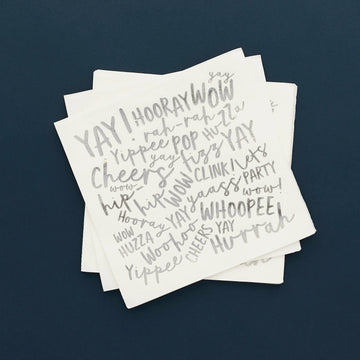 yay
YAY! HOORAY WOW
rah-rah HUZZA
Yippee POP
yay fizz YAY
Cheers CLINK! let's
wow WOW! yaass PARTY
hip hip wow!
Hooray YAY WHOOPEE!
WOW Woohoo
HUZZA CHEERS YAY Hurrah
Yippee